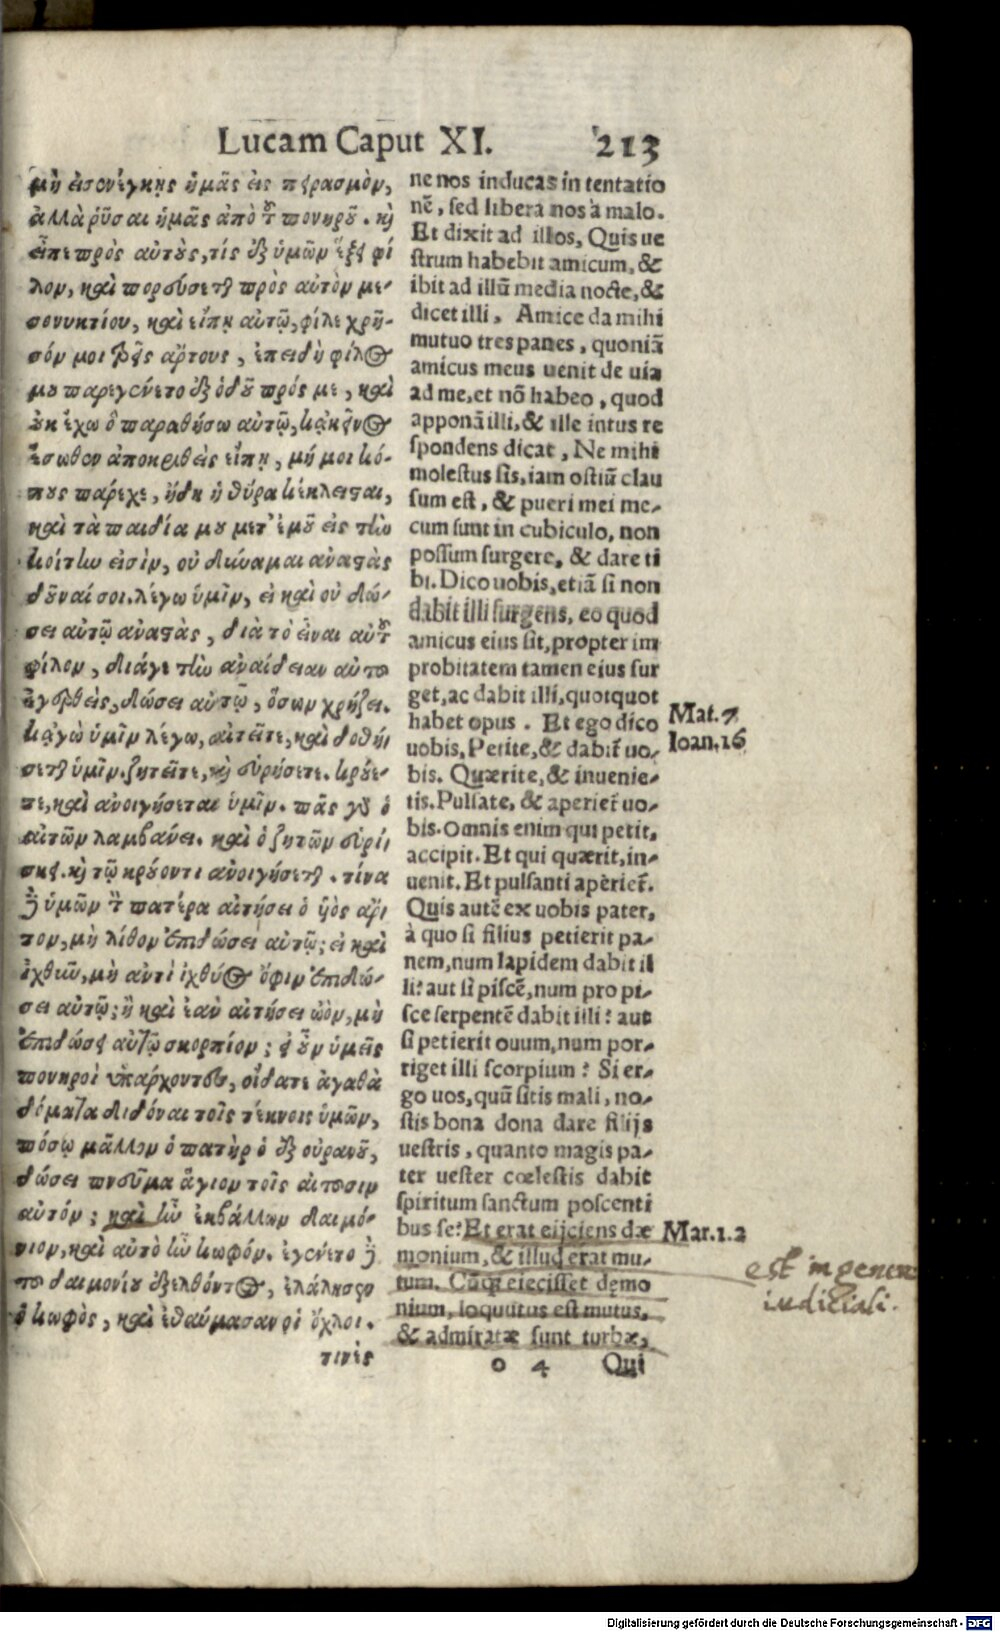 Lucam Caput XI. 213
μὴ εἰσενέγκῃς ἡμᾶς εἰς πειρασμὸν,
ἀλλὰ ῥῦσαι ἡμᾶς ἀπὸ τοῦ πονηροῦ. καὶ
εἶπε πρὸς αὐτοὺς, τίς ἐξ ὑμῶν ἕξει φί
λον, καὶ πορεύσεται πρὸς αὐτὸν με-
σονυκτίου, καὶ εἴπῃ αὐτῷ, φίλε χρῆ-
σόν μοι τρεῖς ἄρτους, ἐπειδὴ φίλος
μου παρεγένετο ἐξ ὁδοῦ πρός με, καὶ
οὐκ ἔχω ὃ παραθήσω αὐτῷ, κἀκεῖνος
ἔσωθεν ἀποκριθεὶς εἴπῃ, μή μοι κό-
πους πάρεχε, ἤδη ἡ θύρα κέκλεισται,
καὶ τὰ παιδία μου μετ' ἐμοῦ εἰς τὴν
κοίτην εἰσὶν, οὐ δύναμαι ἀναστὰς
δοῦναί σοι. λέγω ὑμῖν, εἰ καὶ οὐ δώ-
σει αὐτῷ ἀναστὰς, διὰ τὸ εἶναι αὐτοῦ
φίλον, διάγε τὴν ἀναίδειαν αὐτοῦ
ἐγερθεὶς, δώσει αὐτῷ, ὅσων χρῄζει.
κἀγὼ ὑμῖν λέγω, αἰτεῖτε, καὶ δοθή-
σεται ὑμῖν. ζητεῖτε, καὶ εὑρήσετε. κρούε-
τε, καὶ ἀνοιγήσεται ὑμῖν. πᾶς γὰρ ὁ
αἰτῶν λαμβάνει. καὶ ὁ ζητῶν εὑρί-
σκει. καὶ τῷ κρούοντι ἀνοιγήσεται. τίνα
δὲ ὑμῶν τὸν πατέρα αἰτήσει ὁ υἱὸς ἄρ-
τον, μὴ λίθον ἐπιδώσει αὐτῷ; εἰ καὶ
ἰχθὺν, μὴ ἀντὶ ἰχθύος ὄφιν ἐπιδώ-
σει αὐτῷ; ἢ καὶ ἐὰν αἰτήσει ὠὸν, μὴ
ἐπιδώσει αὐτῷ σκορπίον; εἰ οὖν ὑμεῖς
πονηροὶ ὑπάρχοντες, οἴδατε ἀγαθὰ
δόματα διδόναι τοῖς τέκνοις ὑμῶν,
πόσῳ μᾶλλον ὁ πατὴρ ὁ ἐξ οὐρανοῦ,
δώσει πνεῦμα ἅγιον τοῖς αἰτοῦσιν
αὐτόν; καὶ ἦν ἐκβάλλων δαιμό-
νιον, καὶ αὐτὸ ἦν κωφόν. ἐγένετο δὲ
τοῦ δαιμονίου ἐξελθόντος, ἐλάλησεν
ὁ κωφὸς, καὶ ἐθαύμασαν οἱ ὄχλοι.
τινὲς
ne nos inducas in tentatio
nẽ, sed libera nos à malo.
Et dixit ad illos, Quis ue
strum habebit amicum, &
ibit ad illũ media nocte, &
dicet illi, Amice da mihi
mutuo tres panes, quoniã
amicus meus uenit de uia
ad me, et nõ habeo, quod
apponã illi, & ille intus re
spondens dicat, Ne mihi
molestus sis, iam ostiũ clau
sum est, & pueri mei me-
cum sunt in cubiculo, non
possum surgere, & dare ti
bi. Dico uobis, etiã si non
dabit illi surgens, eo quod
amicus eius sit, propter im
probitatem tamen eius sur
get, ac dabit illi, quotquot
habet opus. Et ego dico
uobis, Petite, & dabit̃ uo-
bis. Quærite, & inuenie-
tis. Pulsate, & aperiet̃ uo-
bis. Omnis enim qui petit,
accipit. Et qui quærit, in-
uenit. Et pulsanti aperiet̃.
Quis autẽ ex uobis pater,
à quo si filius petierit pa-
nem, num lapidem dabit il
li? aut si piscẽ, num pro pi-
sce serpentẽ dabit illi? aut
si petierit ouum, num por-
riget illi scorpium? Si er-
go uos, quũ sitis mali, no-
stis bona dona dare filijs
uestris, quanto magis pa-
ter uester cœlestis dabit
spiritum sanctum poscenti
bus se? Et erat eijciens dæ
monium, & illud erat mu-
tum. Cũq; eiecisset dęmo
nium, loquutus est mutus,
& admiratæ sunt turbæ,
o 4 Qui
Mat. 7
Ioan. 16
Mar. 1. 2
est in genere
iudiciali.
Digitalisierung gefördert durch die Deutsche Forschungsgemeinschaft - DFG